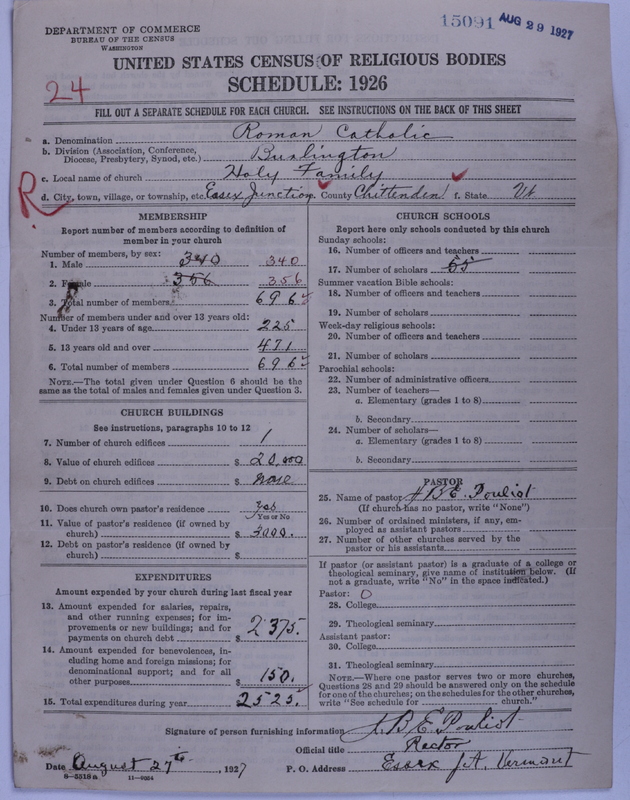 15091 AUG 29 1927
DEPARTMENT OF COMMERCE
BUREAU OF THE CENSUS
WASHINGTON
UNITED STATES CENSUS OF RELIGIOUS BODIES
SCHEDULE: 1926
24
FILL OUT A SEPARATE SCHEDULE FOR EACH CHURCH. SEE INSTRUCTIONS ON THE BACK OF THIS SHEET
a. Denomination Roman Catholic
b. Division (Association, Conference, Diocese, Presbytery, Synod, etc.) Burlington
c. Local name of church Holy Family
R
d. City, town, village, or township, etc. Essex Junction e. County Chittenden f. State Vt
MEMBERSHIP
Report number of members according to definition of
member in your church
Number of members, by sex:
1. Male 340 340
2. Female 356 356
3. Total number of members 696
Number of members under and over 13 years old:
4. Under 13 years of age 225
5. 13 years old and over 471
6. Total number of members 696
NOTE.—The total given under Question 6 should be the
same as the total of males and females given under Question 3.
CHURCH BUILDINGS
See instructions, paragraphs 10 to 12
7. Number of church edifices 1
8. Value of church edifices $ 20,000
9. Debt on church edifices $ none
10. Does church own pastor's residence yes
Yes or No
11. Value of pastor's residence (if owned by
church) $ 3000.
12. Debt on pastor's residence (if owned by
church) $
EXPENDITURES
Amount expended by your church during last fiscal year
13. Amount expended for salaries, repairs,
and other running expenses; for im-
provements or new buildings; and for
payments on church debt $ 2375.
14. Amount expended for benevolences, in-
cluding home and foreign missions; for
denominational support; and for all
other purposes $ 150.
15. Total expenditures during year $ 2525.
CHURCH SCHOOLS
Report here only schools conducted by this church
Sunday schools:
16. Number of officers and teachers
17. Number of scholars 55
Summer vacation Bible schools:
18. Number of officers and teachers
19. Number of scholars
Week-day religious schools:
20. Number of officers and teachers
21. Number of scholars
Parochial schools:
22. Number of administrative officers
23. Number of teachers—
a. Elementary (grades 1 to 8)
b. Secondary
24. Number of scholars—
a. Elementary (grades 1 to 8)
b. Secondary
PASTOR
25. Name of pastor J B E. Pouliot
(If church has no pastor, write "None")
26. Number of ordained ministers, if any, em-
ployed as assistant pastors
27. Number of other churches served by the
pastor or his assistants
If pastor (or assistant pastor) is a graduate of a college or
theological seminary, give name of institution below. (If
not a graduate, write "No" in the space indicated.)
Pastor: O
28. College
29. Theological seminary
Assistant pastor:
30. College
31. Theological seminary
NOTE.—Where one pastor serves two or more churches,
Questions 28 and 29 should be answered only on the schedule
for one of the churches; on the schedules for the other churches,
write "See schedule for church."
Signature of person furnishing information J. B E Pouliot
Official title Rector
Date August 27th, 1927 P. O. Address Essex Jct. Vermont
8—5518 a 11—9034